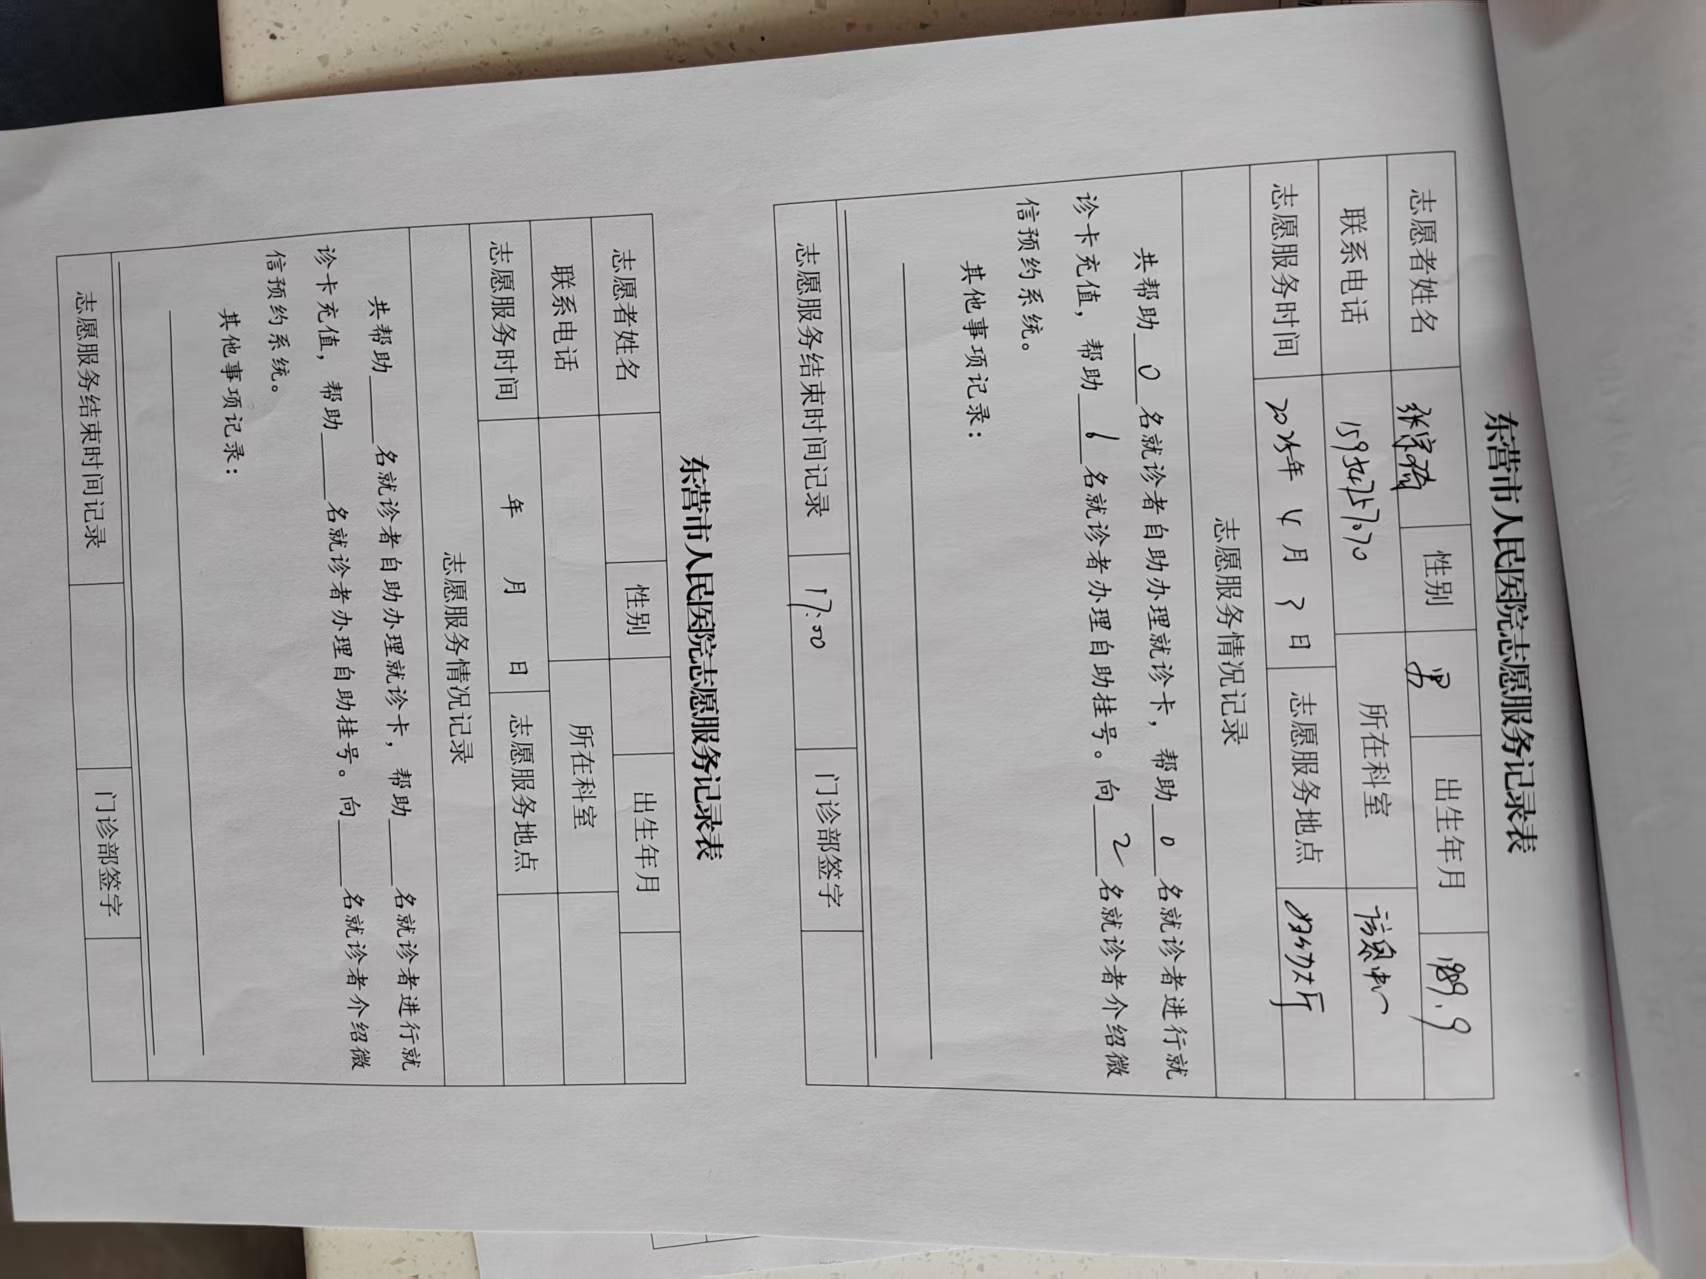 东营市人民医院志愿服务记录表
志愿者姓名 张 性别 男 出生年月 1989.9
联系电话 所在科室 信息中心
志愿服务时间 2025年 4月 3日 志愿服务地点 大厅
志愿服务情况记录
共帮助 0 名就诊者自助办理就诊卡，帮助 0 名就诊者进行就
诊卡充值，帮助 6 名就诊者办理自助挂号。向 2 名就诊者介绍微
信预约系统。
其他事项记录：
志愿服务结束时间记录 17:00 门诊部签字
东营市人民医院志愿服务记录表
志愿者姓名 性别 出生年月
联系电话 所在科室
志愿服务时间 年 月 日 志愿服务地点
志愿服务情况记录
共帮助 名就诊者自助办理就诊卡，帮助 名就诊者进行就
诊卡充值，帮助 名就诊者办理自助挂号。向 名就诊者介绍微
信预约系统。
其他事项记录：
志愿服务结束时间记录 门诊部签字